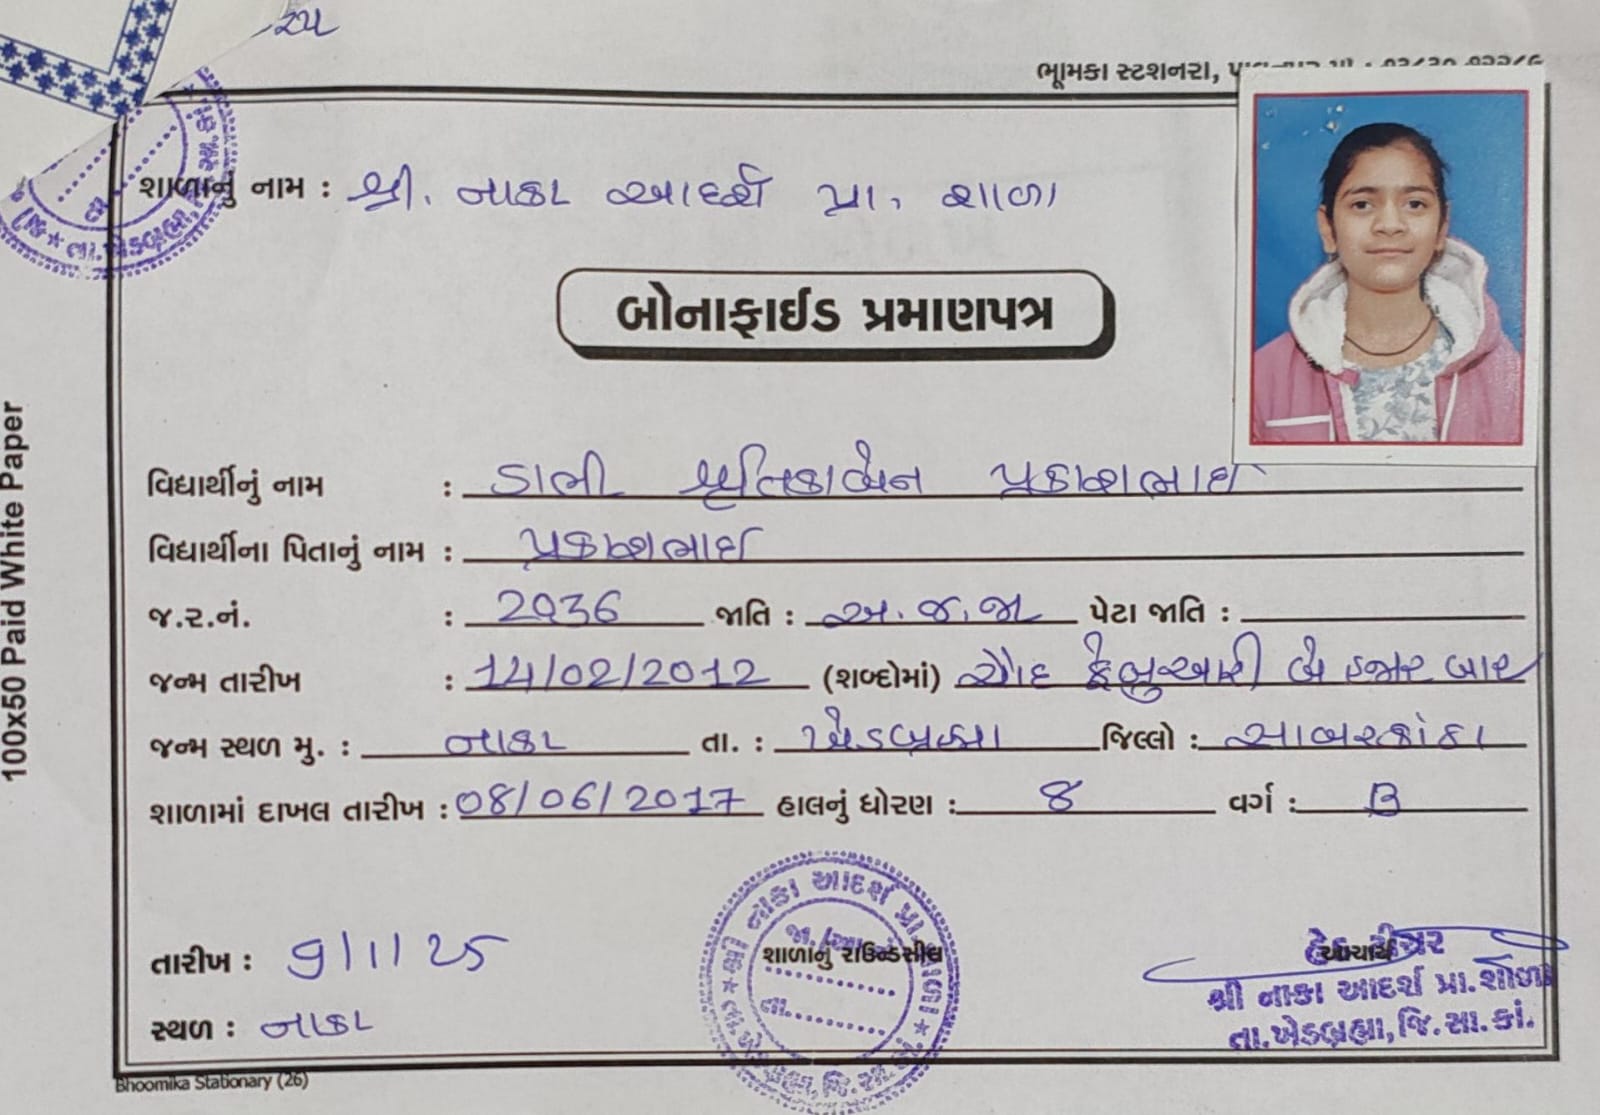 રરાય
ભૂમિકા સ્ટેશનરી,
શાળાનું નામ : શ્રી. નાકા આદર્શ પ્રા. શાળા
બોનાફાઈડ પ્રમાણપત્ર
વિદ્યાર્થીનું નામ : ડાભી શ્રૃતિકાબેન પ્રકાશભાઈ
વિદ્યાર્થીના પિતાનું નામ : પ્રકાશભાઈ
જ.ર.નં. : 2936 જાતિ : અ.જ.જા પેટા જાતિ :
જન્મ તારીખ : 14/02/2012 (શબ્દોમાં) ચૌદ ફેબ્રુઆરી બે હજાર બાર
જન્મ સ્થળ મુ. : નાકા તા. : ખેડબ્રહ્મા જિલ્લો : સાબરકાંઠા
શાળામાં દાખલ તારીખ : 08/06/2017 હાલનું ધોરણ : 8 વર્ગ : B
તારીખ : 9/1/25
સ્થળ : નાકા
શ્રી નાકા આદર્શ પ્રા. શાળા
શાળાનું રાઉન્ડસીલ
તા.
હેડ ટીચર
આચાર્ય
શ્રી નાકા આદર્શ પ્રા.શાળા
તા.ખેડબ્રહ્મા,જિ.સા.કાં.
Bhoomika Stationary (26)
100x50 Paid White Paper